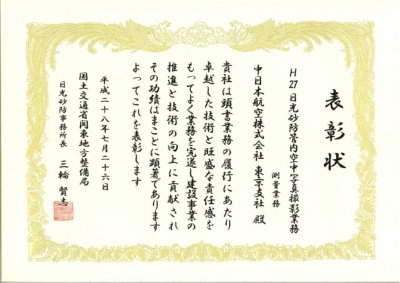 表彰状
H27日光砂防管内空中写真撮影業務
測量業務
中日本航空株式会社 東京支社 殿
貴社は頭書業務の履行にあたり
卓越した技術と旺盛な責任感を
もってよく業務を完遂し建設事業の
推進と技術の向上に貢献され
その功績はまことに顕著であります
よってこれを表彰します
平成二十八年七月二十六日
国土交通省関東地方整備局
日光砂防事務所長 三輪 賢志